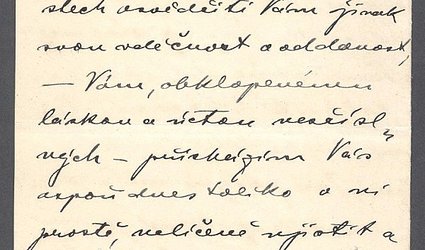 slech osvědčiti Vám jinak
svou vděčnost a oddanost,
— Vám, obklopenému
láskou a úctou nesčísl„
ných — přicházím Vás
aspoň dnes toliko a
prostě, nelíčeně ujistit a